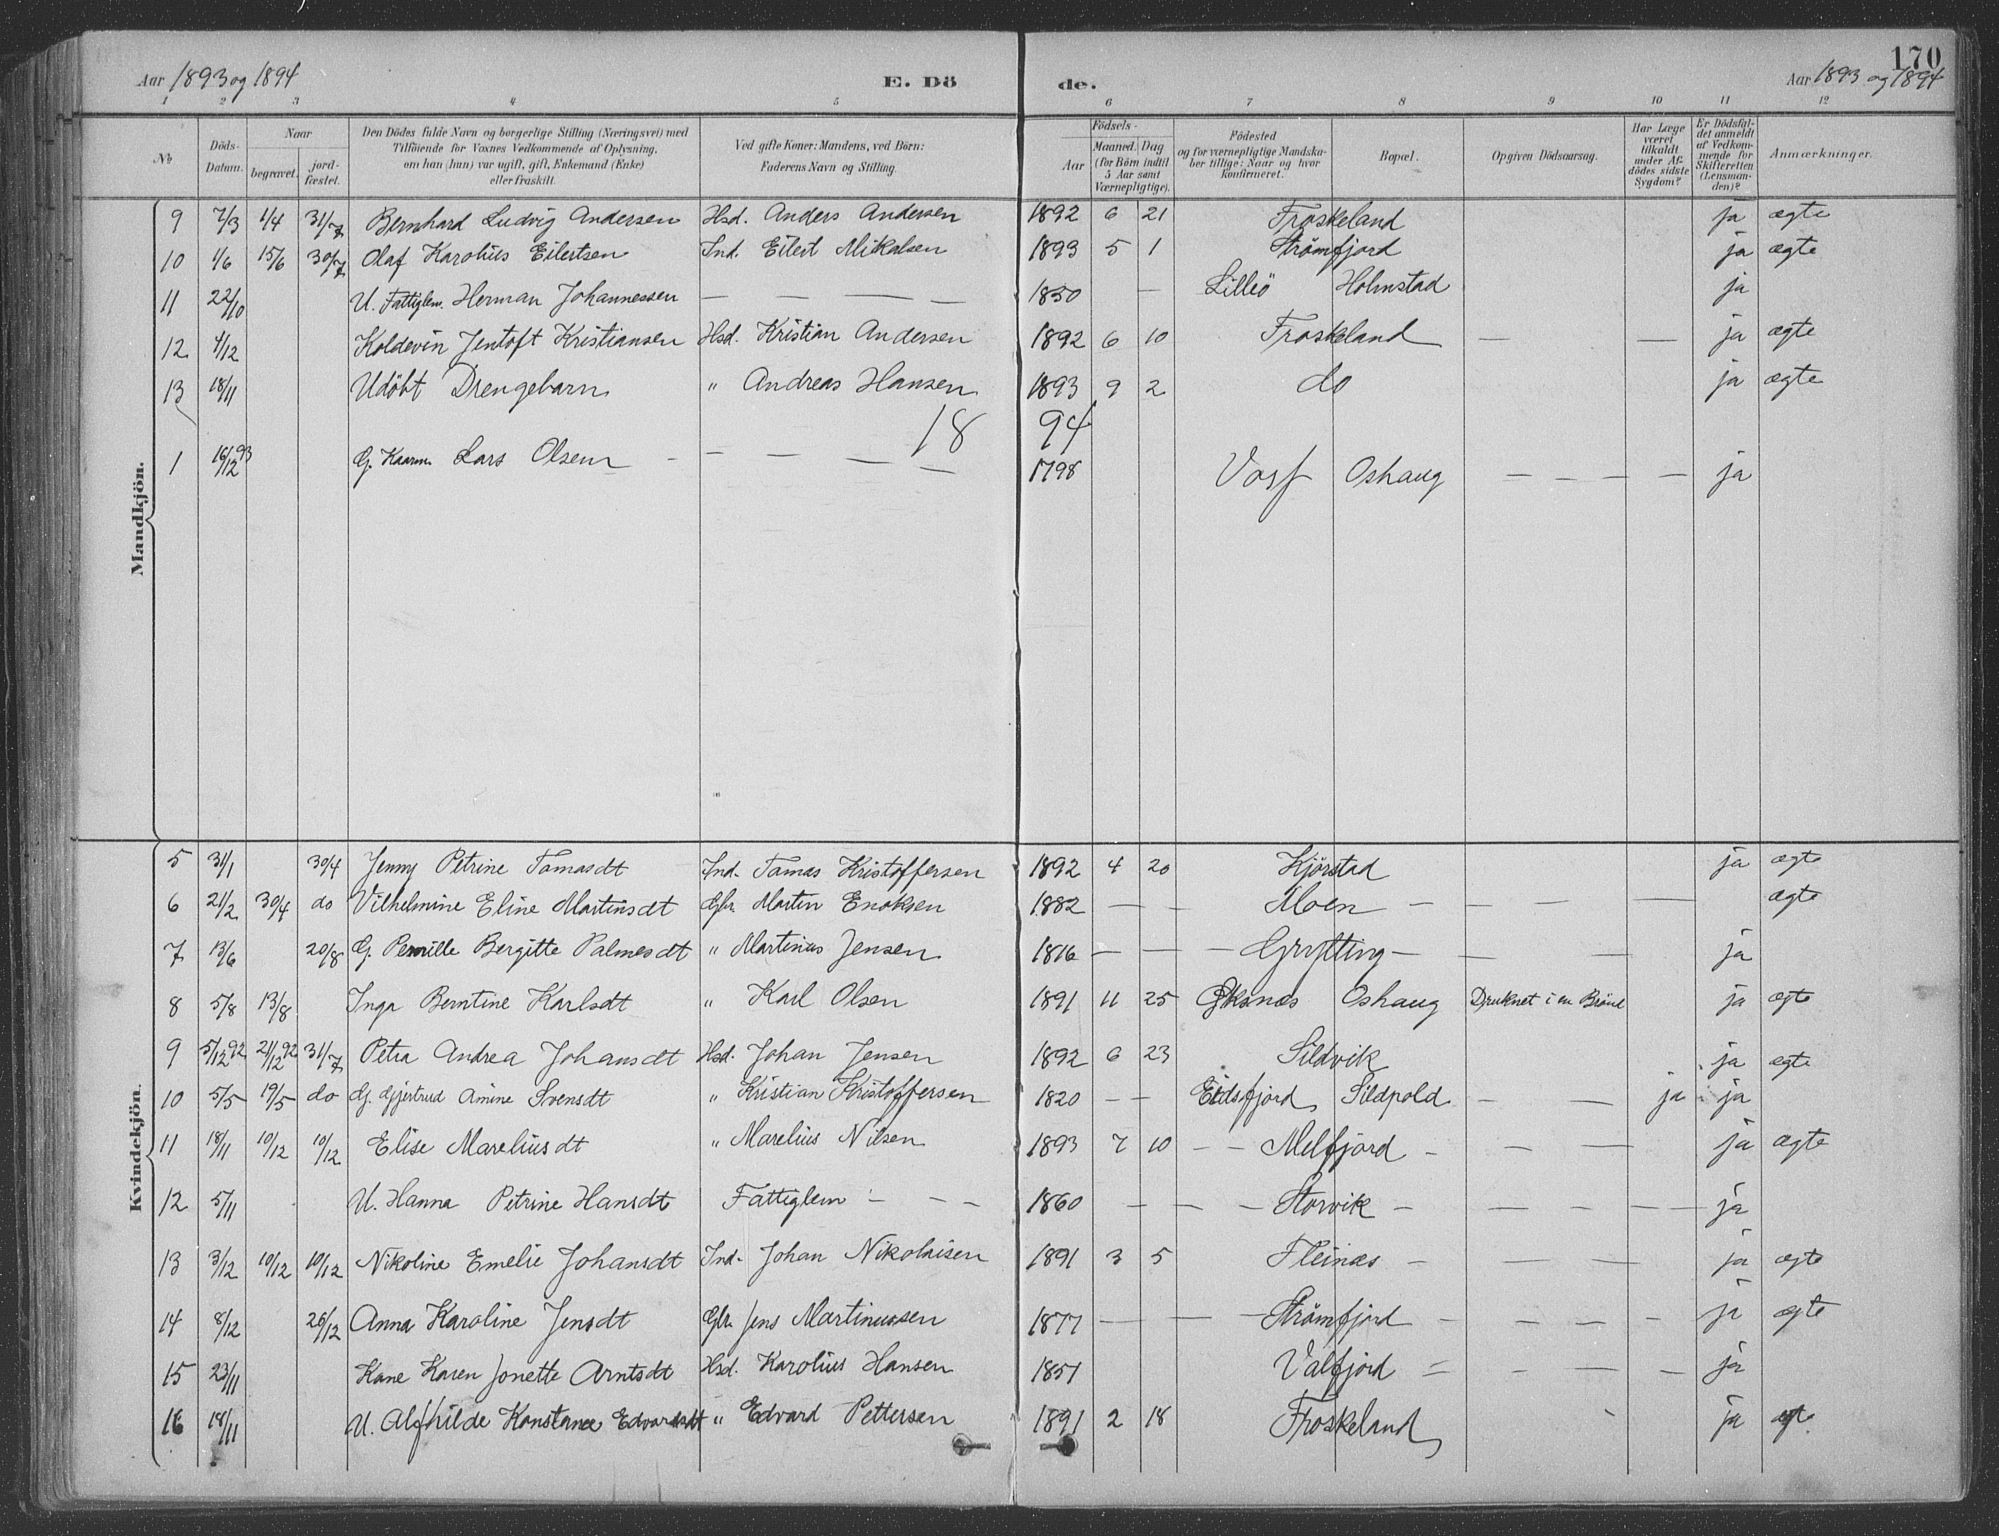 170
Aar 1893 og 1894 E. Dö de. Aar 1893 og 1894
1 2 3 4 5 6 7 8 9 10 11 12
No
Döds-Datum.
Naar
begravet. jordfæstet.
Den Dödes fulde Navn og borgerlige Stilling (Næringsvei) med
Tilföiende for Voxnes Vedkommende af Oplysning,
om han (hun) var ugift, gift, Enkemand (Enke)
eller fraskilt.
Ved gifte Koner: Mandens, ved Börn:
Faderens Navn og Stilling.
Födsels-
Aar
Maaned. Dag
(for Börn indtil
5 Aar samt
Værnepligtige).
Födested
og for værnepligtige Mandska-
ber tillige: Naar og hvor
konfirmeret.
Bopæl.
Opgiven Dödsaarsag.
Har Læge
været
tilkaldt
under Af-
dödes sidste
Sygdom?
Er Dödsfal-
det anmeldt
af Vedkom-
mende for
Skifteretten
(Lensman-
den)?
Anmærkninger.
Mandkjön.
9 7/3 1/4 31/7 Bernhard Ludvig Andersen Hsd. Anders Andersen 1892 6 21 Froskeland ja ægte
10 1/6 15/6 30/7 Olaf Karolius Eilertsen Ind. Eilert Mikalsen 1893 5 1 Strømfjord ja ægte
11 22/10 U. Fattiglem. Herman Johannessen — — — — 1830 — Lilleö Holmstad ja
12 4/12 Koldevin Jentoft Kristiansen Hsd. Kristian Andersen 1892 6 10 Froskeland — — ja ægte
13 18/11 Udöbt Drengebarn " Andreas Hansen 1893 9 2 do ja ægte
18 94
1 16/12 93 G. Kaarm. Lars Olsen — — — — — 1798 Oshaug — — — — ja
Kvindekjön.
5 31/1 30/4 Jenny Petrine Tomasdt Ind. Tomas Kristoffersen 1892 4 20 Kjörstad ja ægte
6 21/2 30/4 do Vilhelmine Eline Martinsdt Gbr. Martin Enoksen 1882 — — Moen — — — — — ægte
7 13/6 20/8 G. Pernille Bergitte Palmesdt " Martinus Jensen 1816 — — — Grytting — — — ja
8 5/8 13/8 Inga Berntine Karlsdt " Karl Olsen 1891 11 25 Øksnæs Oshaug Druknet i en Brönd ja ægte
9 5/12 92 21/12 92 31/7 Petra Andrea Johansdt Hsd. Johan Jensen 1892 6 23 Sildvik ja ægte
10 5/5 19/5 do G. Gjertrud Amine Svensdt " Kristian Kristoffersen 1820 — — Eidsfjord Sildpold — — ja ja
11 18/11 10/12 10/12 Elise Mareliusdt " Marelius Nilsen 1893 7 10 — — Melfjord — — — ja ægte
12 5/11 U. Hanna Petrine Hansdt Fattiglem — — — 1860 — — — Storvik — — — — — ja
13 3/12 10/12 10/12 Nikoline Emelie Johansdt Ind. Johan Nikolaisen 1891 3 5 Fleinæs — — — ja ægte
14 8/12 26/12 Anna Karoline Jensdt Gbr. Jens Martinussen 1877 — — — Strømfjord — — — — — ja ægte
15 23/11 Kone Karen Jonette Arntsdt Hsd. Karolius Hansen 1851 Valfjord — — — — ja
16 18/11 U. Alfhilde Konstance Edvardsdt " Edvard Pettersen 1891 2 18 Froskeland ja ægte